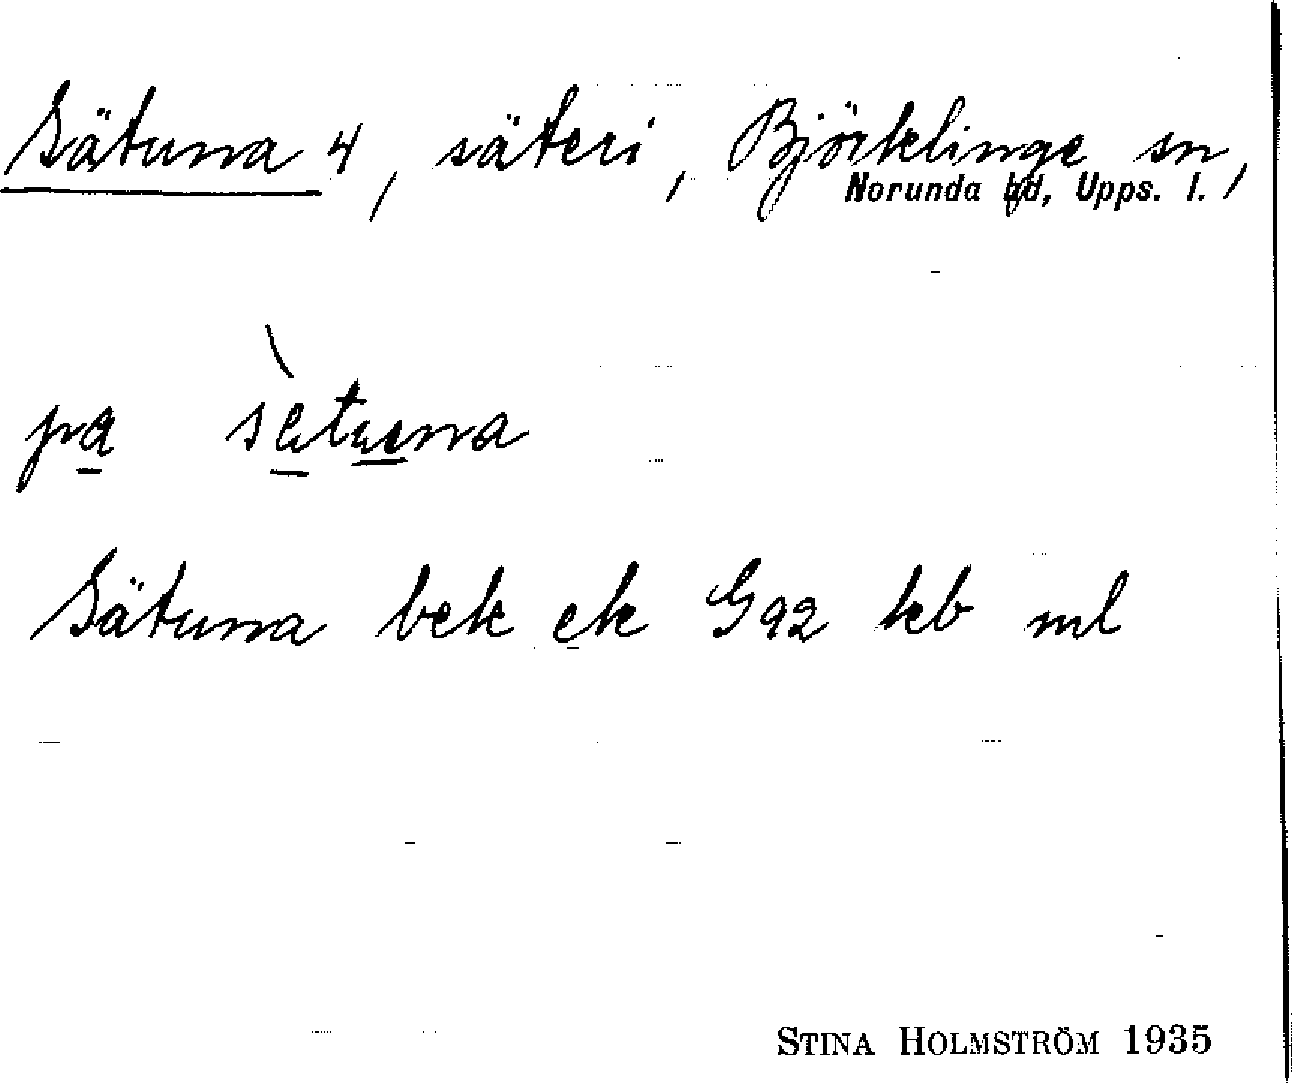 Sätuna 4, säteri, Björklinge sn,
Norunda hd, Upps. l.
på sètuna
Sätuna bek ek G92 kb ml
STINA HOLMSTRÖM 1935